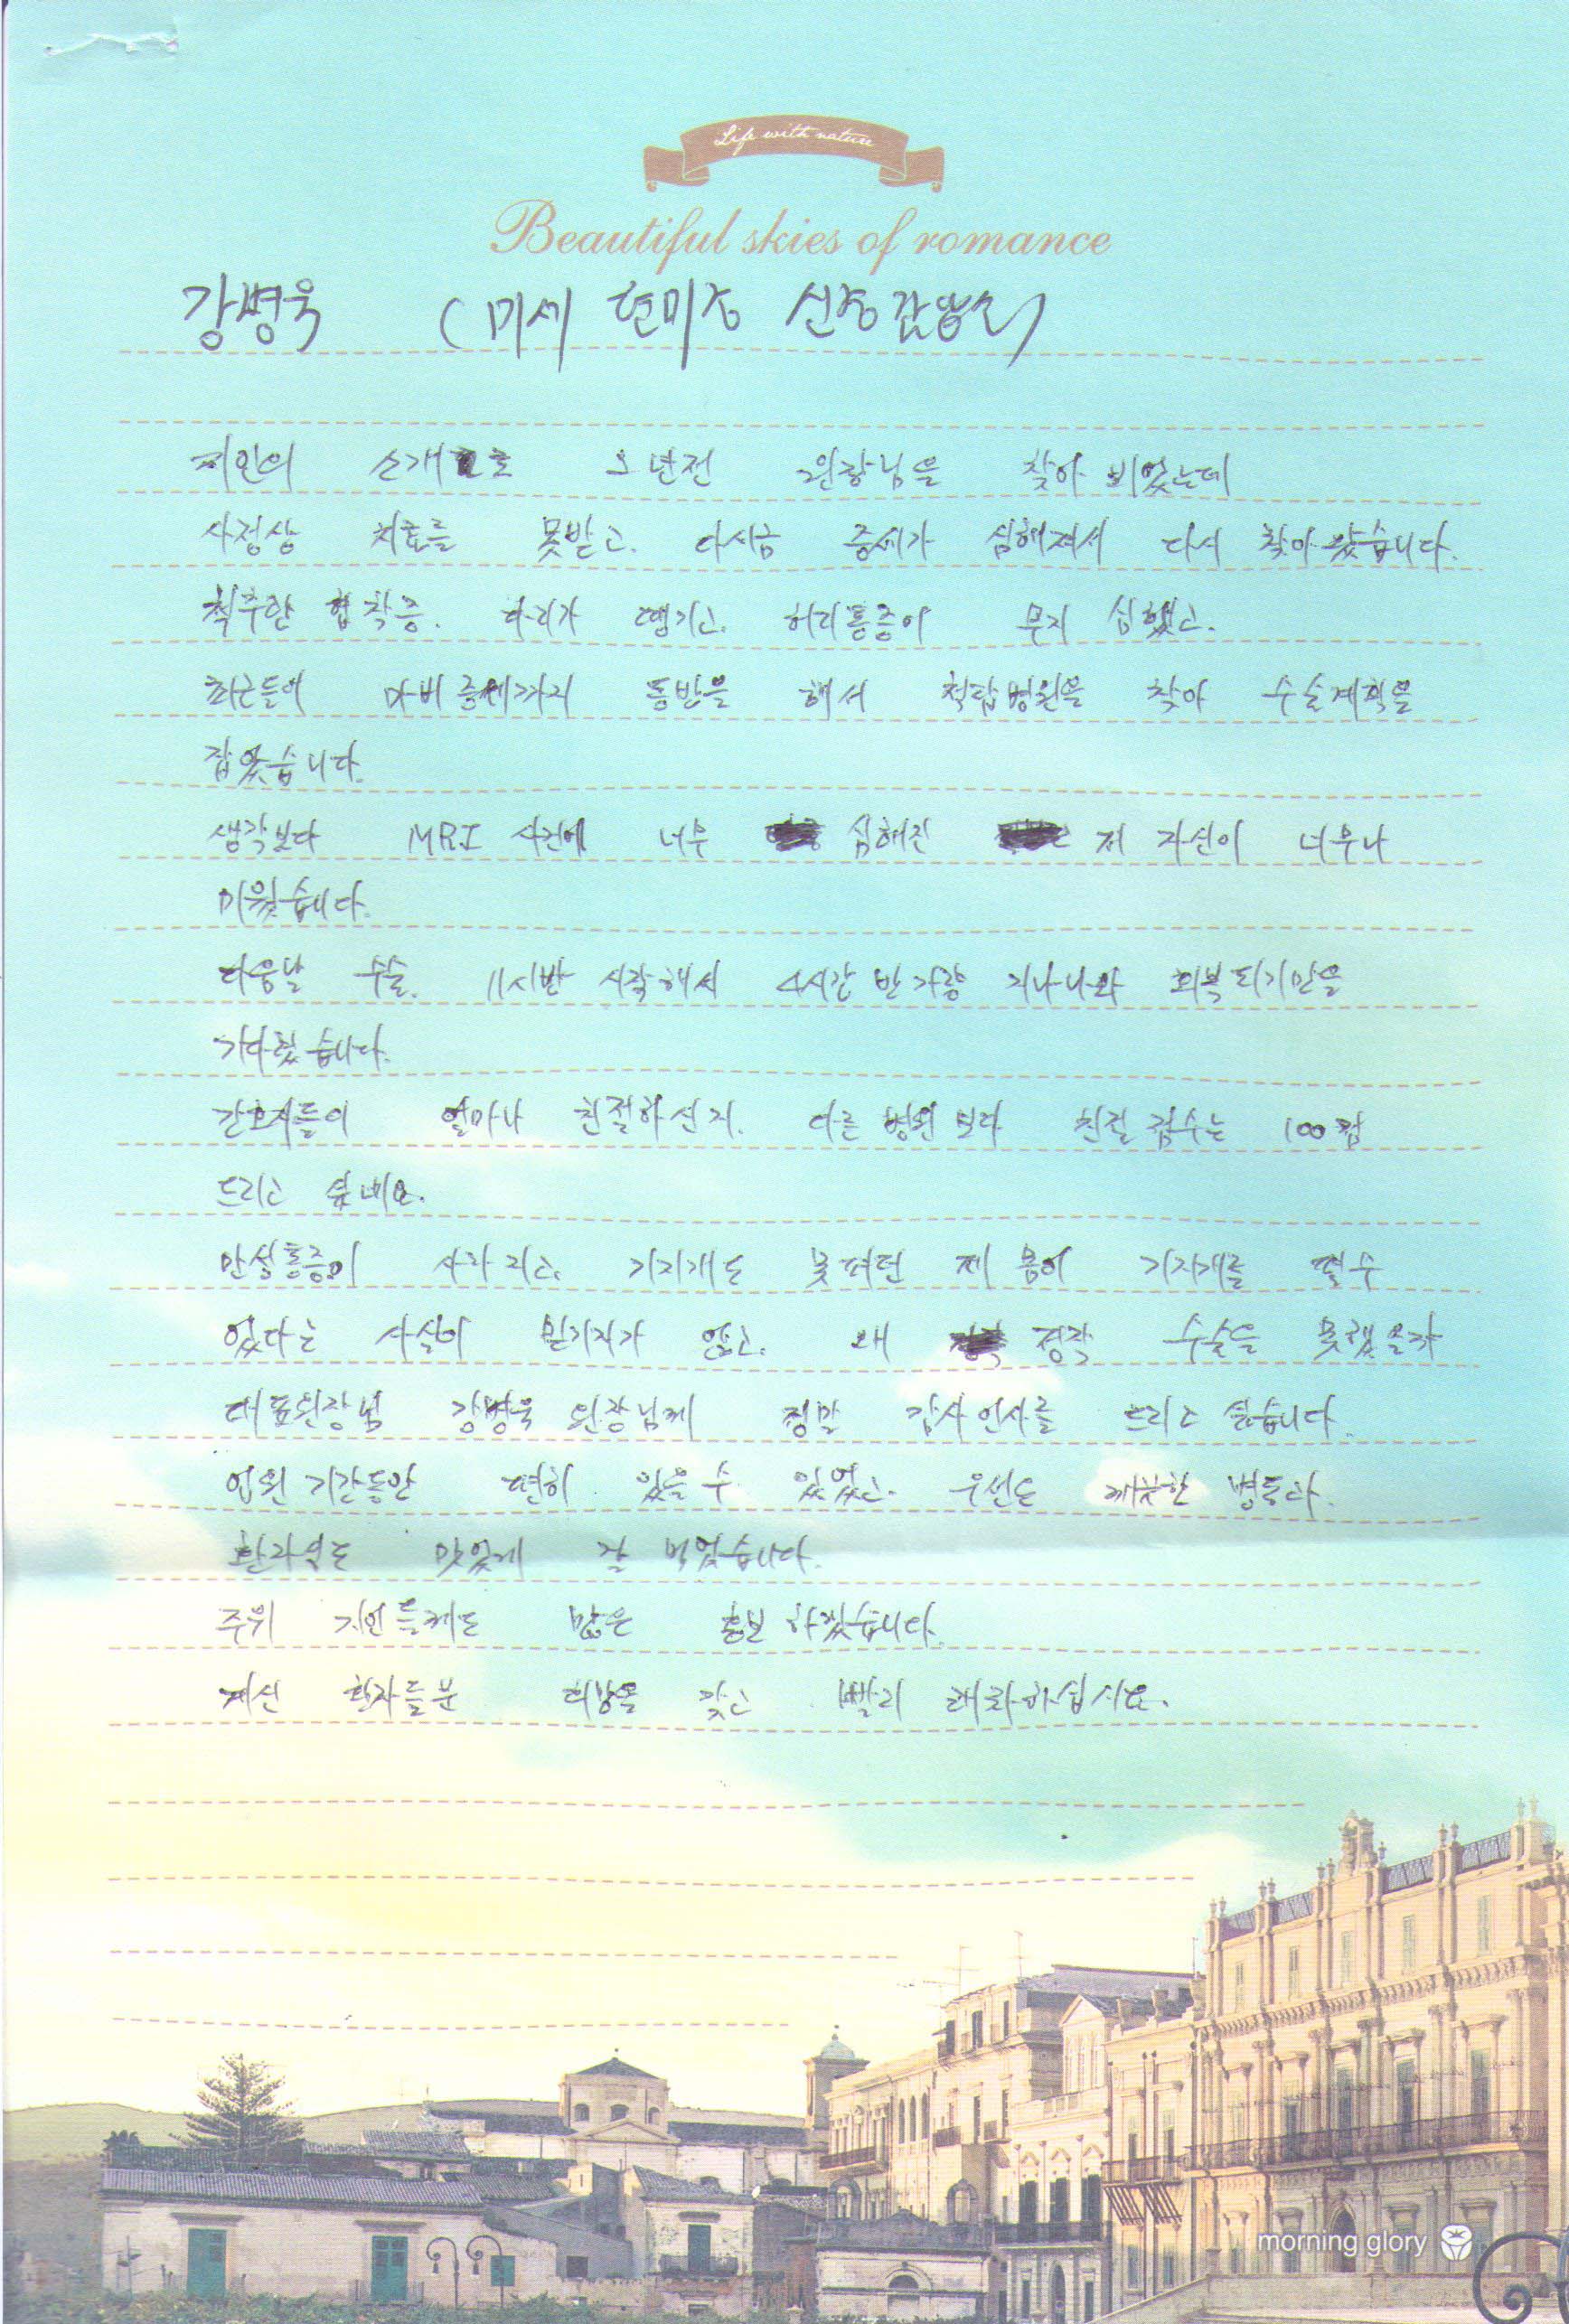 Life with nature
Beautiful skies of romance
강병욱 (미세 현미경 신경감압술)
지인의 소개로 오년전 원장님을 찾아 뵈었는데
사정상 치료를 못받고. 다시금 증세가 심해져서 다시 찾아왔습니다.
척추관 협착증. 다리가 땡기고. 허리통증이 무지 심했고.
최근들에 마비증세까지 동반을 해서 척탑병원을 찾아 수술계획을
잡았습니다.
생각보다 MRI 사진에 너무 심해진 저 자신이 너무나
미웠습니다.
다음날 수술. 11시반 시작해서 4시간 반가량 지나니와 회복되기만을
기다렸습니다.
간호사들이 얼마나 친절하신지. 다른 병원보다 친절점수는 100점
드리고 싶네요.
만성통증이 사라지고. 기지개도 못펴던 제 몸이 기지개를 펼수
있다는 사실이 믿기지가 않고. 왜 정작 수술을 못했을까
대표원장님 강병욱 원장님께 정말 감사인사를 드리고 싶습니다.
입원기간동안 편히 있을수 있었고. 우선은 깨끗한 병동과.
환자식도 맛있게 잘 먹었습니다.
주위 지인들께도 많은 홍보 하겠습니다.
계신 환자들분 희망을 갖고 빨리 쾌차하십시요.
morning glory